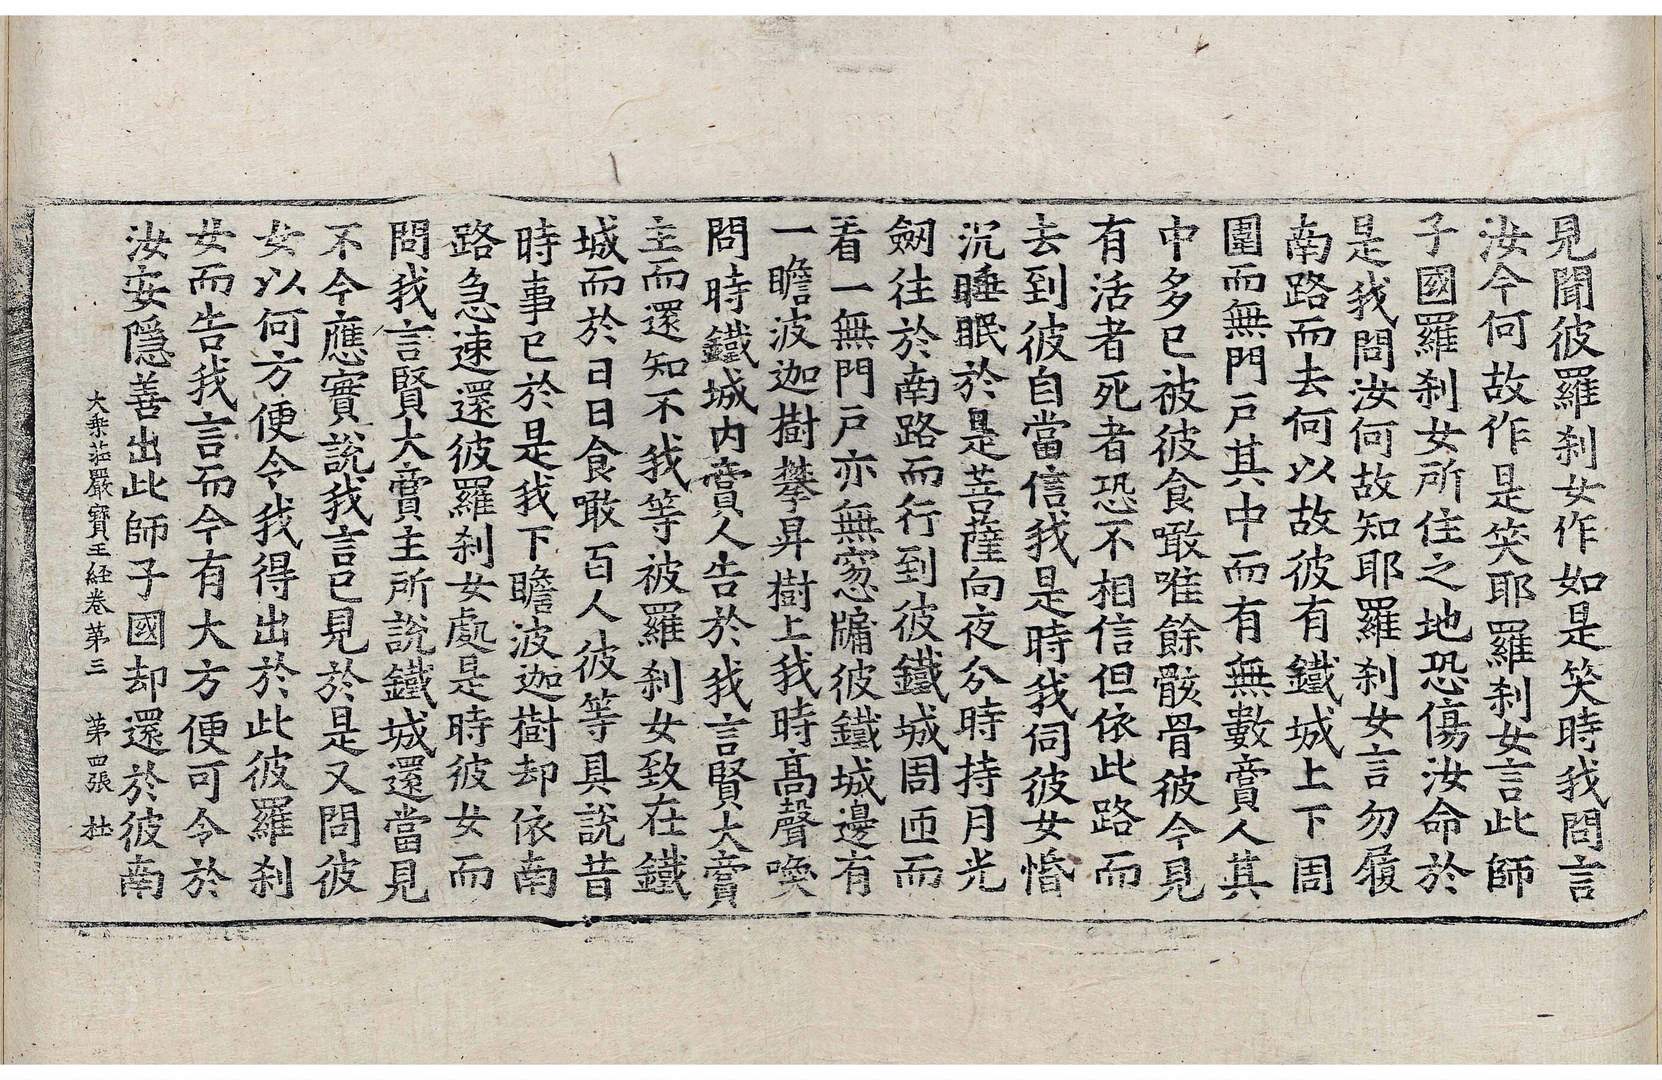 見聞彼羅刹女作如是笑時我問言
汝今何故作是笑耶羅刹女言此師
子國羅刹女所住之地恐傷汝命於
是我問汝何故知耶羅刹女言勿履
南路而去何以故彼有鐵城上下周
圍而無門戶其中而有無數賷人其
中多已被彼食噉唯餘骸骨彼今見
有活者死者恐不相信但依此路而
去到彼自當信我是時我伺彼女惛
沉睡眠於是菩薩向夜分時持月光
劒往於南路而行到彼鐵城周迊而
看一無門戶亦無窓牗彼鐵城邊有
一瞻波迦樹攀昇樹上我時高聲喚
問時鐵城內賷人告於我言賢大賷
主而還知不我等被羅刹女致在鐵
城而於日日食噉百人彼等具說昔
時事已於是我下瞻波迦樹却依南
路急速還彼羅刹女處是時彼女而
問我言賢大賷主所說鐵城還當見
不今應實說我言已見於是又問彼
女以何方便令我得出於此彼羅刹
女而告我言而今有大方便可令於
汝安隱善出此師子國却還於彼南
大乗莊嚴寶王経卷第三 第四張 杜